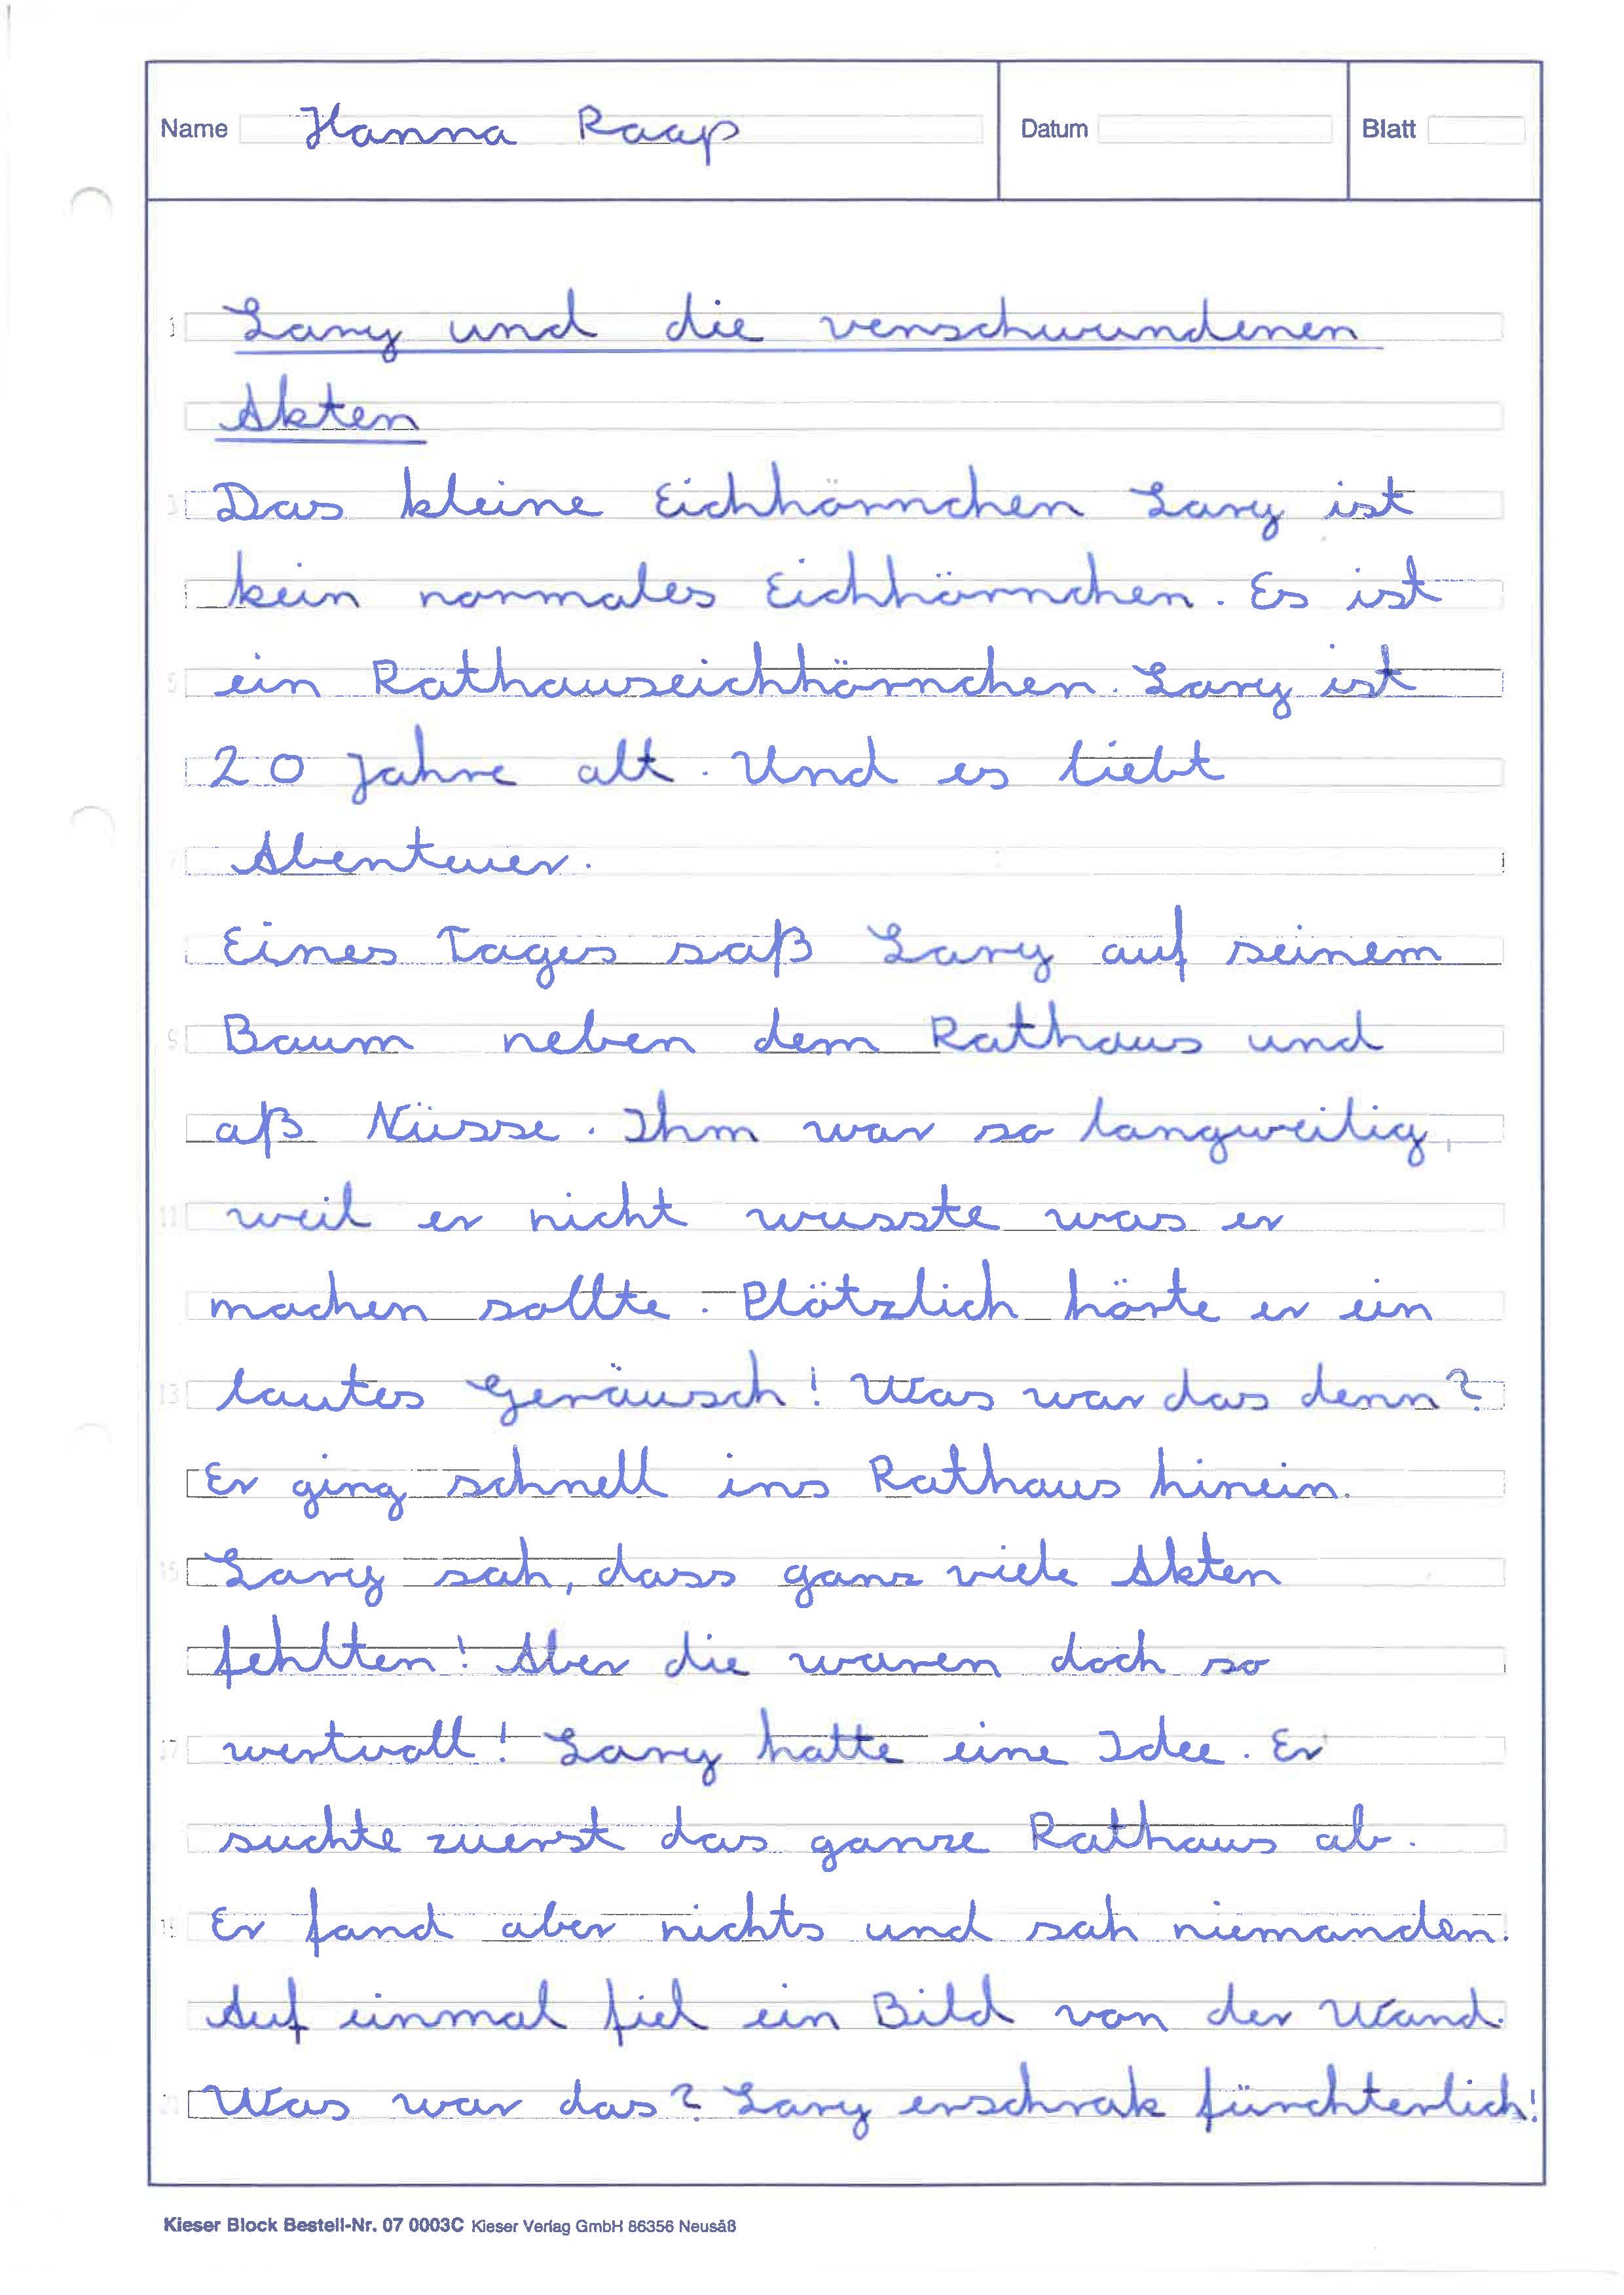 Name Hanna Raap Datum Blatt
1 Lary und die verschwundenen
Akten
3 Das kleine Eichhörnchen Lary ist
kein normales Eichhörnchen. Es ist
5 ein Rathauseichhörnchen. Lary ist
20 Jahre alt. Und es liebt
7 Abenteuer.
Eines Tages saß Lary auf seinem
9 Baum neben dem Rathaus und
aß Nüsse. Ihm war so langweilig,
11 weil er nicht wusste was er
machen sollte. Plötzlich hörte er ein
13 lautes Geräusch! Was war das denn?
Er ging schnell ins Rathaus hinein.
15 Lary sah, dass ganz viele Akten
fehlten! Aber die waren doch so
17 wertvoll! Lary hatte eine Idee. Er
suchte zuerst das ganze Rathaus ab.
19 Er fand aber nichts und sah niemanden.
Auf einmal fiel ein Bild von der Wand.
21 Was war das? Lary erschrak fürchterlich!
Kieser Block Bestell-Nr. 07 0003C Kieser Verlag GmbH 86356 Neusäß